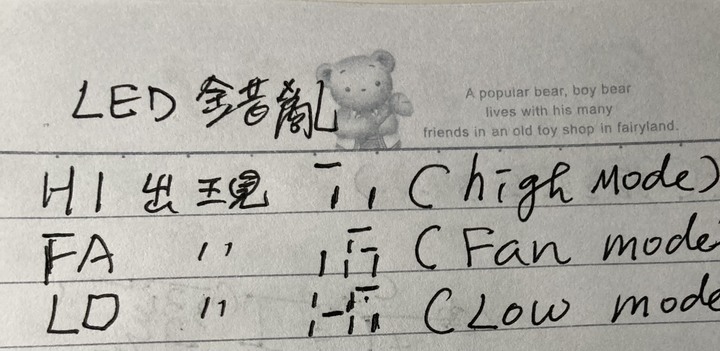 LED 錯亂
A popular bear, boy bear
lives with his many
friends in an old toy shop in fairyland.
HI 出現 (high Mode)
FA 〃 (Fan mode
LO 〃 (Low mode